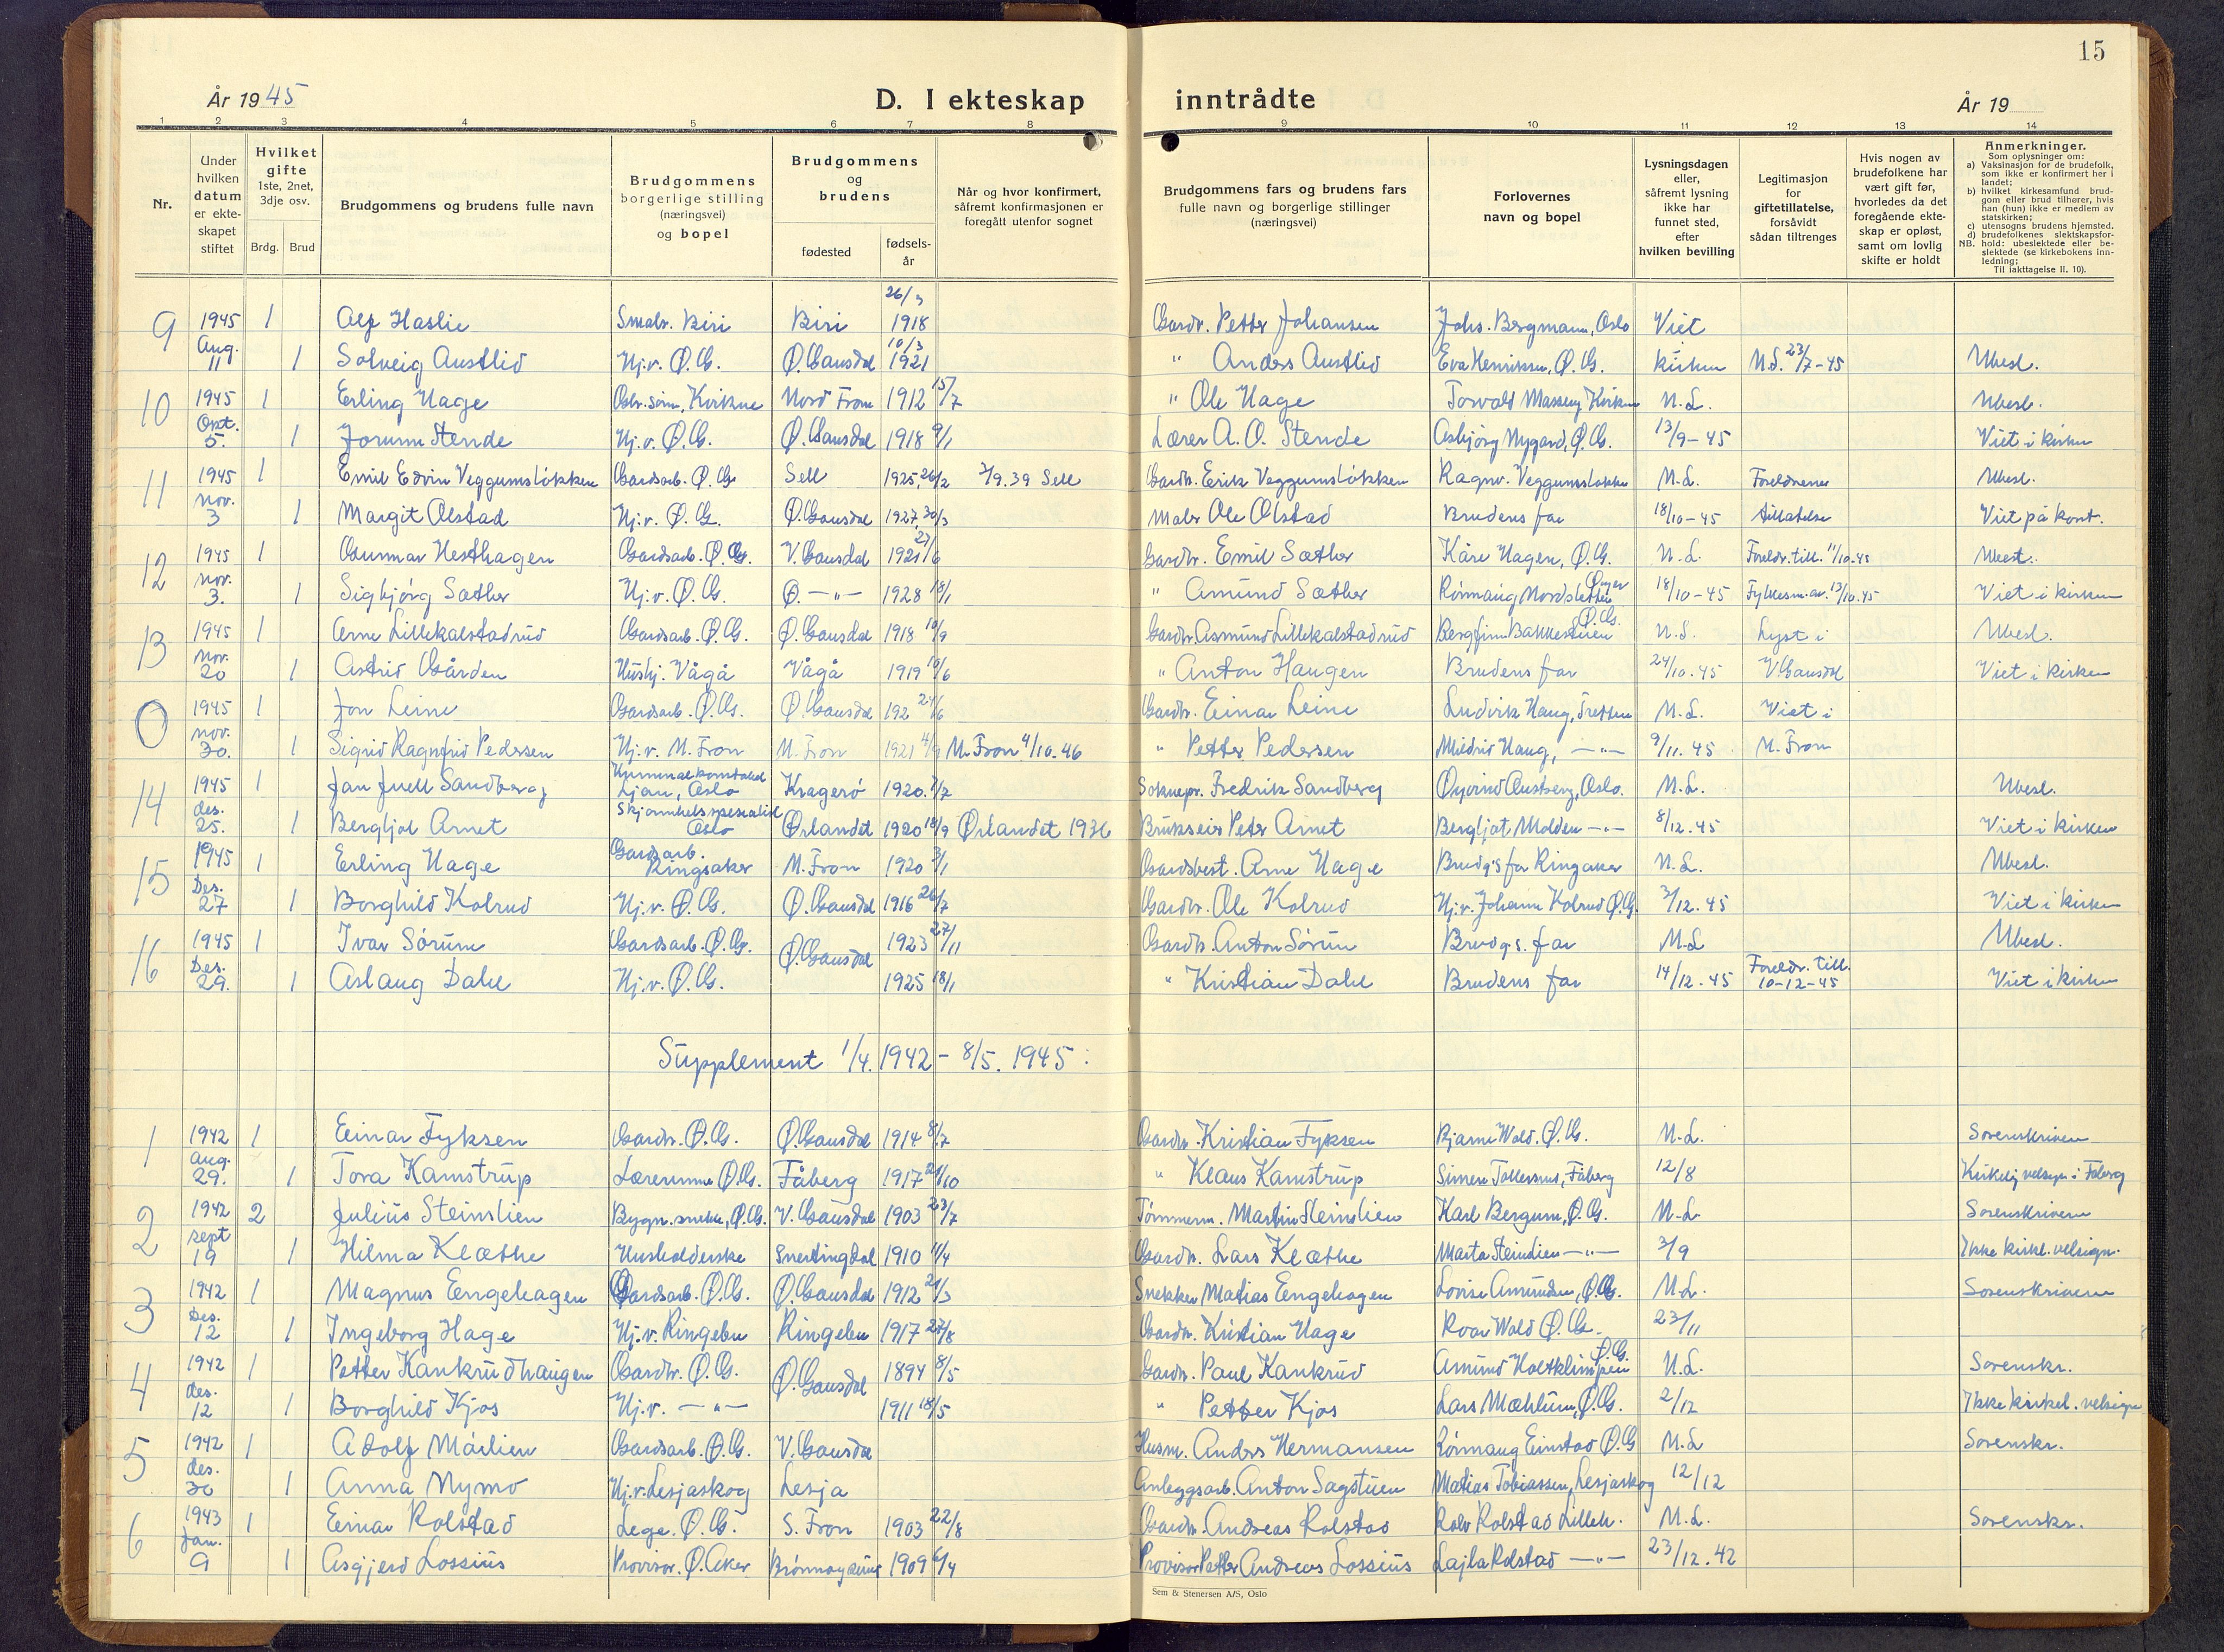 15
År 1945 D. I ekteskap inntrådte År 19
1 2 3 4 5 6 7 8 9 10 11 12 13 14
Nr.
Under hvilken datum er ekteskapet stiftet
Hvilket gifte 1ste, 2net, 3dje osv.
Brdg. Brud
Brudgommens og brudens fulle navn
Brudgommens borgerlige stilling (næringsvei) og bopel
Brudgommens og brudens
fødested
fødsels-år
Når og hvor konfirmert, såfremt konfirmasjonen er foregått utenfor sognet
Brudgommens fars og brudens fars fulle navn og borgerlige stillinger (næringsvei)
Forlovernes navn og bopel
Lysningsdagen eller, såfremt lysning ikke har funnet sted, efter hvilken bevilling
Legitimasjon for giftetillatelse, forsåvidt sådan tiltrenges
Hvis nogen av brudefolkene har vært gift før, hvorledes da det foregående ekteskap er opløst, samt om lovlig skifte er holdt
Anmerkninger.
Som oplysninger om:
a) Vaksinasjon for de brudefolk, som ikke er konfirmert her i landet;
b) hvilket kirkesamfund brudgom eller brud tilhører, hvis han (hun) ikke er medlem av statskirken;
c) utensogns brudens hjemsted.
d) brudefolkenes slektskapsforhold: ubeslektede eller beslektede (se kirkebokens innledning;
NB. Til iakttagelse II. 10).
9 1945 1 Alf Haslie Smabr. Biri Biri 26/3 1918 Gardbr. Petter Johansen Johs. Bergmann, Oslo Viet
Aug. 11 1 Solveig Austlid Hj.v. Ø.G. Ø. Gausdal 10/3 1921 " Anders Austlid Eva Henriksen, Ø.G. kirken N.S. 23/7-45 Ubesl.
10 1945 1 Erling Hage Gbr. sønn, Kvikne Nord Fron 1912 15/7 " Ole Hage Torvald Masseng Kvikne N.L. Ubesl.
Okt. 5. 1 Jorunn Stende Hj.v. Ø.G. Ø. Gausdal 1918 9/1 Lærer A. O. Stende Asbjørg Nygard, Ø.G. 13/9-45 Viet i kirken
11 1945 1 Emil Edvin Veggumsløkken Gardsarb. Ø.G. Sell 1925, 26/2 3/9.39 Sell Gardbr. Erik Veggumsløkken Ragnv. Veggumsløkken N.L. Foreldrenes Ubesl.
nov. 3 1 Margit Olstad Hj.v. Ø.G. Ø. Gausdal 1927, 30/3 Maler Ole Olstad Brudens far 18/10-45 tillatelse Viet på kont.
12 1945 1 Gunnar Hesthagen Gardsarb. Ø.G. V. Gausdal 1921 27/6 Gardbr. Emil Sæther Kåre Hagen, Ø.G. N.L. Foreldr. till. 11/10.45 Ubesl.
nov. 3. 1 Sigbjørg Sæther Hj.v. Ø.G. Ø. —"— 1928 18/1 " Amund Sæther Rønnaug Nordsletten Øyer 18/10-45 Fylkesm. av. 13/10.45 Viet i kirken
13 1945 1 Arne Lillekalstadrud Gardsarb. Ø.G. Ø. Gausdal 1918 10/9 Gardbr. Asmund Lillekalstadrud Bergfinn Bakkestuen Ø.G. N.L. Lyst i Ubesl.
nov. 20 1 Astrid Gården Hushj. Vågå Vågå 1919 10/6 " Anton Haugen Brudens far 24/10.45 V. Gausdal Viet i kirken
0 1945 1 Jon Leine Gardsarb. Ø.G. Ø. Gausdal 192 24/6 Gardbr. Einar Leine Ludvik Haug, Tretten N.L. Viet i
nov. 30. 1 Sigrid Ragnfrid Pedersen Hj.v. N. Fron N. Fron 1921 4/9 N. Fron 4/10.46 " Petter Pedersen Mildrid Haug, —"— 9/11.45 N. Fron
14 1945 1 Jan Juell Sandberg Ljan, Oslo Kragerø 1920. 7/7 Soknepr. Fredrik Sandberg Øyvind Austberg, Oslo. N.L. Ubesl.
des. 25. 1 Bergljot Arnet Skjønnhetsspesialist Oslo Ørlandet 1920 18/9 Ørlandet 1936 Brukseier Peter Arnet Bergljot Molden —"— 8/12.45 Viet i kirken
15 1945 1 Erling Hage Gardsarb. Ringsaker N. Fron 1920 3/1 Gardsbest. Arne Hage Brudg's far Ringsaker N.L. Ubesl.
Des. 27 1 Borghild Kolrud Hj.v. Ø.G. Ø. Gausdal 1916 26/7 Gardbr. Ole Kolrud Hj.v. Johanne Kolrud Ø.G. 3/12.45 Viet i kirken
16 1945 1 Ivar Sørum Gardsarb. Ø.G. Ø. Gausdal 1923 27/11 Gardb. Anton Sørum Brudg.s. far N.L Ubesl.
Des. 29. 1 Aslaug Dahl Hj.v. Ø.G. 1925 18/1 " Kristian Dahl Brudens far 14/12.45 Foreldr. till. 10-12-45 Viet i kirken
Supplement 1/4. 1942 - 8/5. 1945:
1 1942 1 Einar Fyksen Gardbr. Ø.G. Ø. Gausdal 1914 8/7 Gardbr. Kristian Fyksen Bjarne Wold. Ø.G. N.L. Sorenskriven
aug. 29. 1 Tora Kamstrup Lærerinne Ø.G. Fåberg 1917 21/10 " Klaus Kamstrup Simen Tollersrud, Fåberg 12/8 Kirkelig velsign. i Fåberg
2 1942 2 Julius Steinslien Bygn. snekk., Ø.G. V. Gausdal 1903 23/7 Tømmerm. Martin Steinslien Karl Bergum, Ø.G. N.L Sorenskriven
sept 19 1 Hilma Klæthe Husholderske Snertingdal 1910 11/4 Gardbr. Lars Klæthe Marta Steinslien —"— 3/9 Ikke kirkl. velsign.
3 1942 1 Magnus Engehagen Gardsarb. Ø.G. Ø. Gausdal 1912 21/3 Snekker Matias Engehagen Lovise Amundsen, Ø.G. N.L. Sorenskriven
Des. 12 1 Ingeborg Hage Hj.v. Ringebu Ringebu 1917 27/8 Gardbr. Kristian Hage Roar Wold Ø.G. 23/11
4 1942 1 Petter Kankrudhaugen Gardbr. Ø.G. Ø. Gausdal 1894 8/5 Gardbr. Paul Kankrud Amund Holtklimpen Ø.G. N.L. Sorenskr.
des. 12 1 Borghild Kjos Hj.v. —"— 1911 18/5 " Petter Kjos Lars Mæhlum, Ø.G. 2/12 Ikke kirkel. velsign
5 1942 1 Adolf Mælien Gardsarb. Ø.G. V. Gausdal Husm. Anders Hermansen Rønnaug Einstad Ø.G N.L Sorenskr.
des. 30 1 Anna Nymo Hj.v. Lesjaskog Lesja Anleggsarb. Anton Sagstuen Matias Tobiassen, Lesjaskog 12/12
6 1943 1 Einar Rolstad Lege. Ø.G. S. Fron 1903 22/8 Gardbr. Andreas Rolstad Rolv Rolstad Lilleh. N.L. Sorenskr.
Jan. 9 1 Asgjerd Lossius Provisor. Ø. Aker Brønnøysund 1909 6/4 Provisor Petter Andreas Lossius Lajla Rolstad —"— 23/12.42
Sem & Stenersen A/S, Oslo